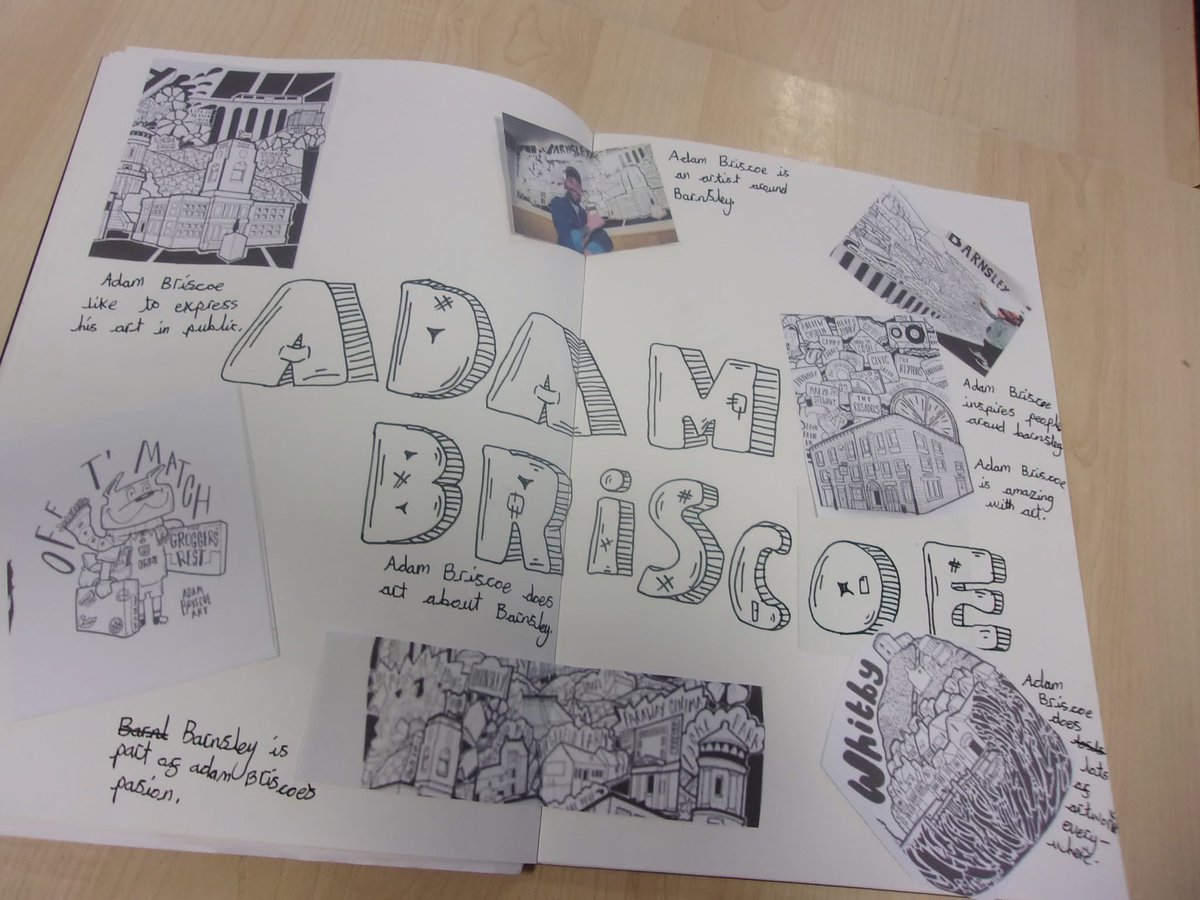 Adam Briscoe
like to express
his art in public.
BARNSLEY
Adam Briscoe is
an artist around
Barnsley
BARNSLEY
ADAM
BRiSCOE
CIVIC
THE
REYTONS
THE
ROSADOCS
Adam Briscoe
inspires people
aroud barnsley
Adam Briscoe
is amazing
with art.
OFF T' MATCH
GROGGERS
REST
ADAM
BRISCOE
ART
Adam Briscoe does
art about Barnsley.
PARKWAY CINEMA
Barnsley is
part of adam Briscoes
pasion.
Whitby
Adam
Briscoe
does
lots
of
artwork
every-
where.